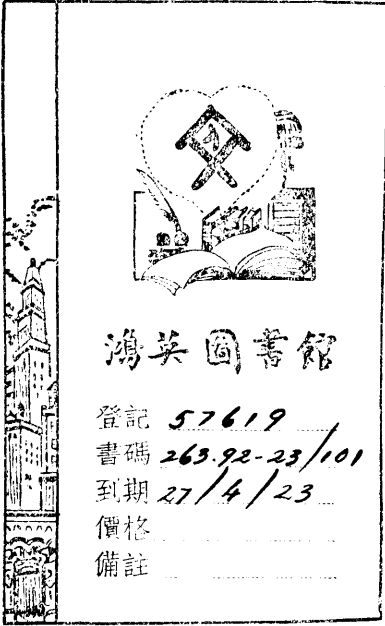 鴻英圖書館
登記 57619
書碼 263.92-23/101
到期 27/4/23
價格
備註